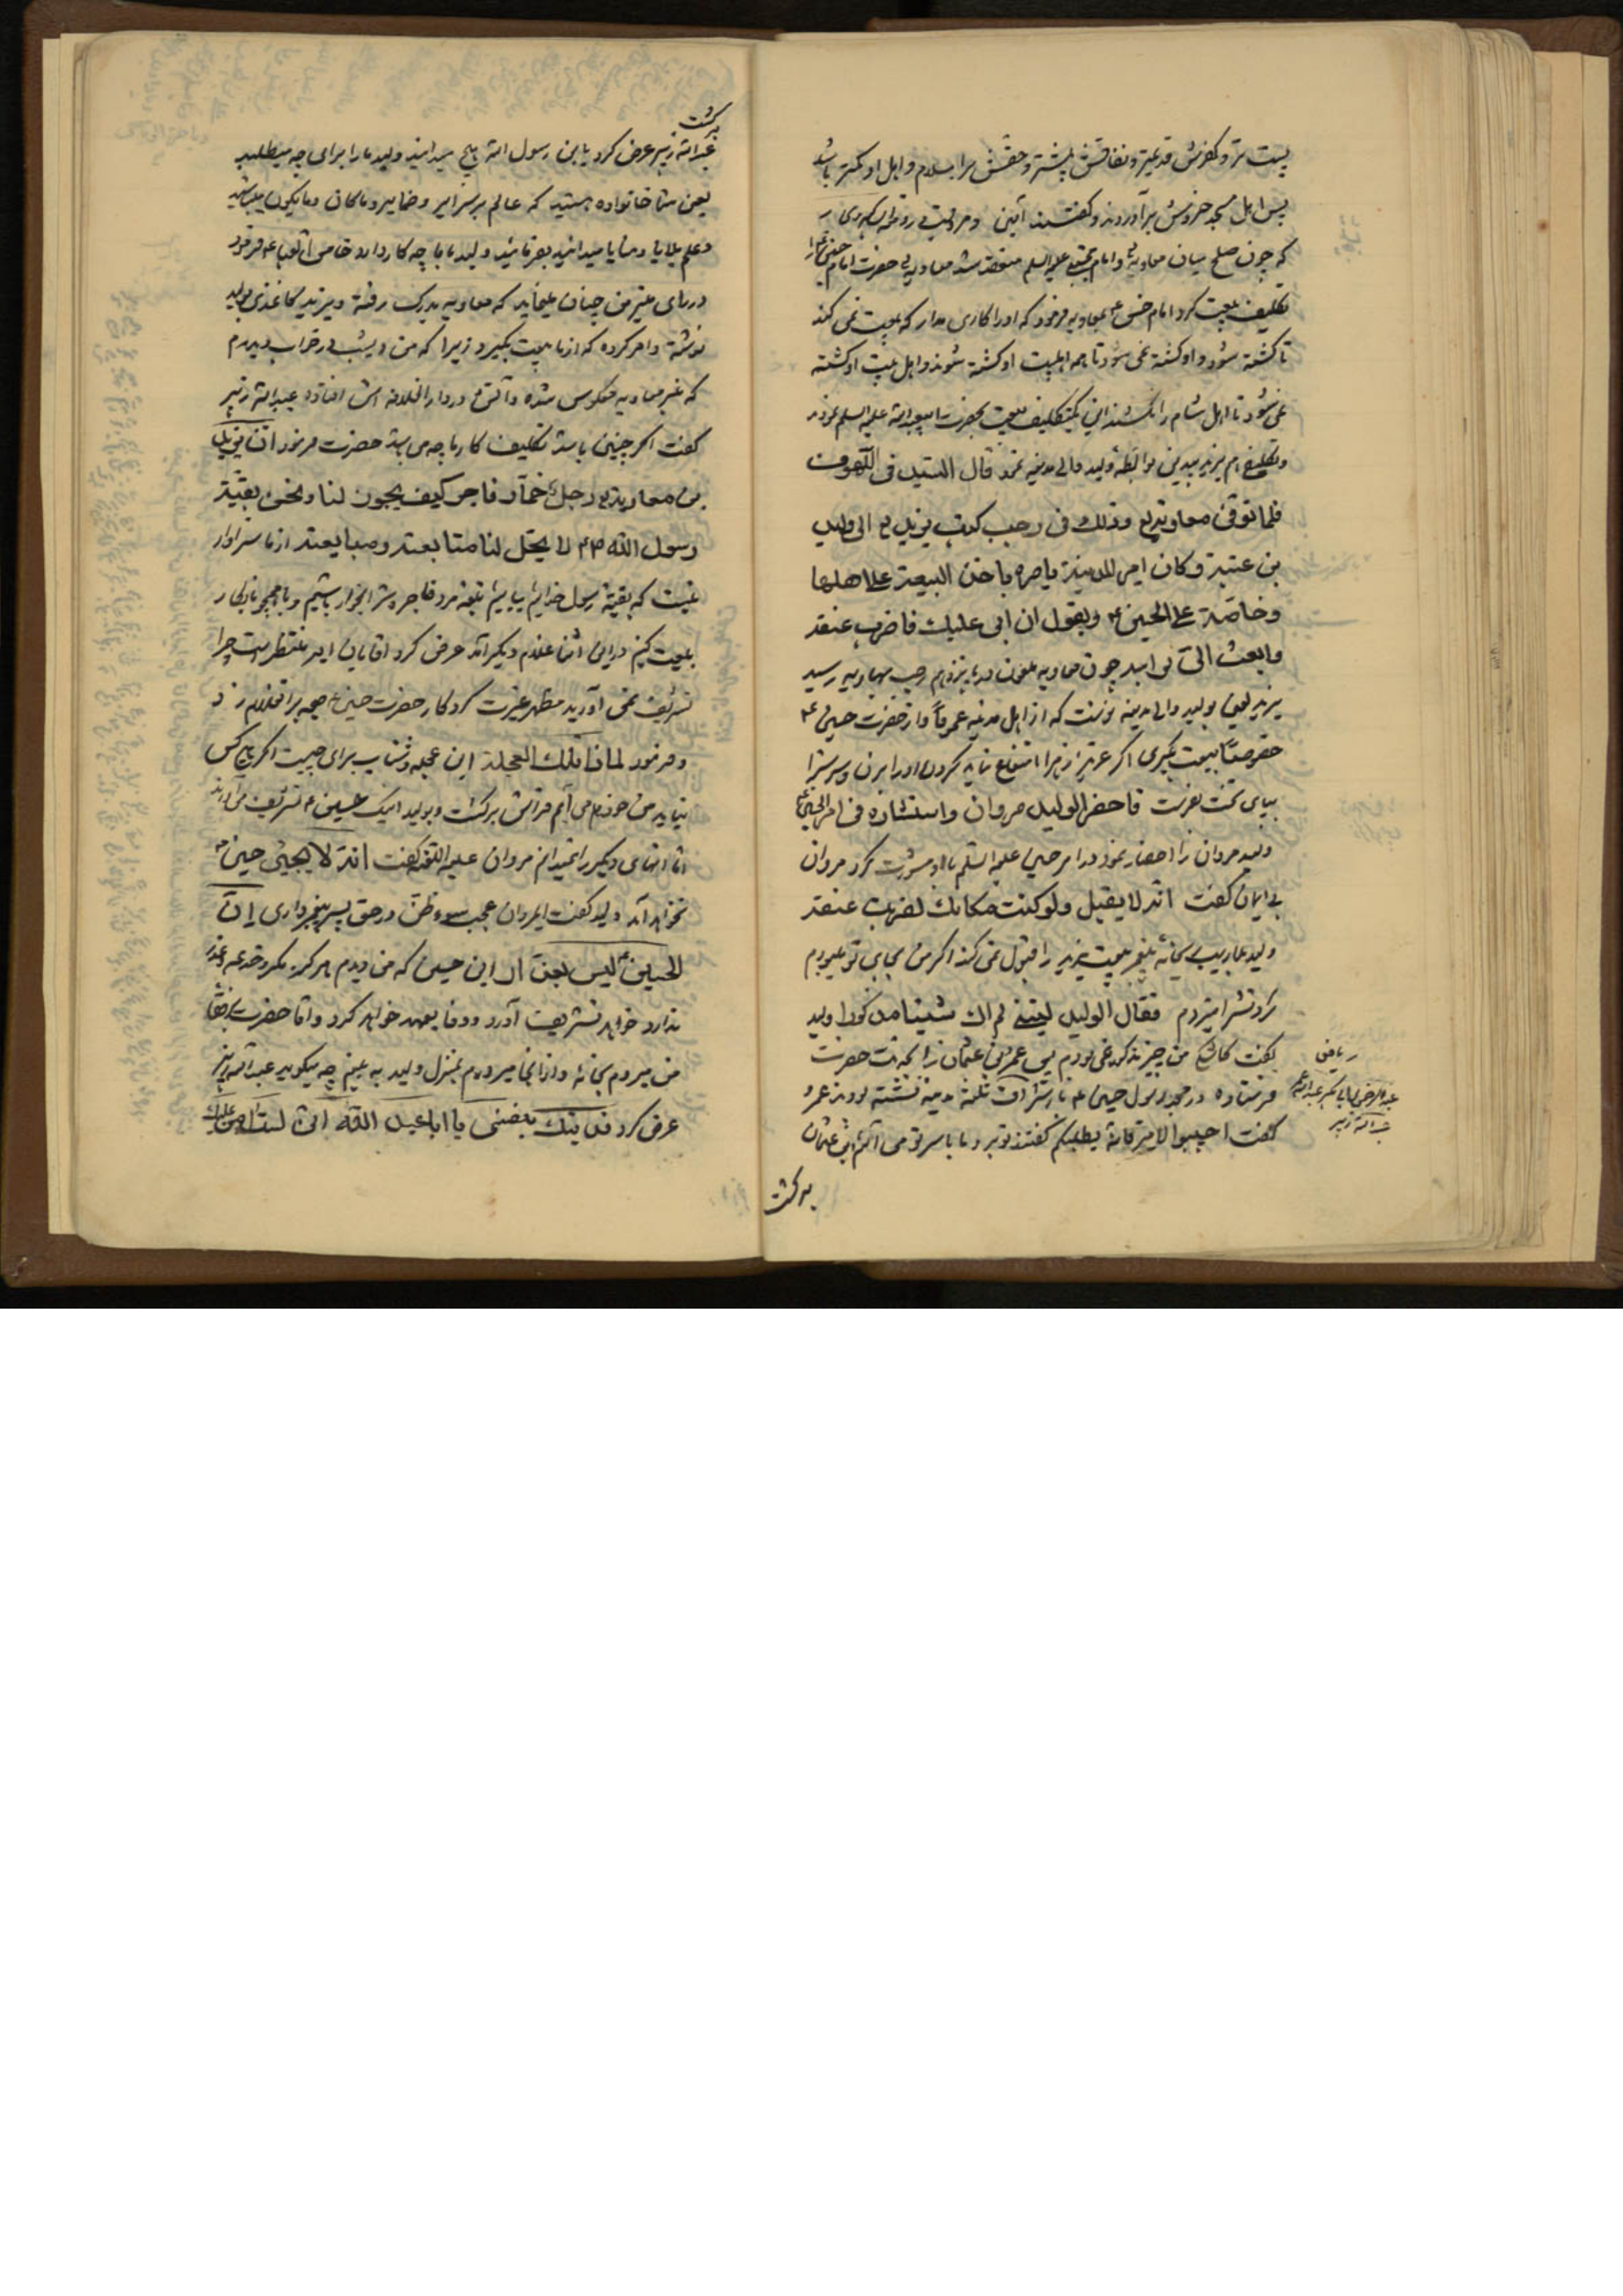 پست تر و کفرش قدیمتر و نفاقش بیشتر و حقش بر اسلام و اهل او کمتر باشد
پس اهل مسجد خروش برآوردند و گفتند آمین
که چون صلح میان معاویه و امام مجتبی علیه السلم منعقد شد معاویه حضرت امام حسین را
تکلیف بیعت کرد امام حسن ع بمعاویه فرمود که او را کاری مدار که بیعت نمی کند
تا کشته شود و او کشته نمی شود تا همه اهلبیت او کشته شوند و اهل بیت او کشته
نمی شود تا اهل شام را نکشند این تکلیف بیعت بحضرت ابیعبدالله علیه السلم نمودند
ولید والی مدینه نمود قال السید فی اللهوف
فلما توفی معاویه و ذلک فی رجب کتب یزید الی ولید
بن عتبة و کان امیر المدینة یامره باخذ البیعة علی اهلها
و خاصة علی الحسین ع و یقول ان ابی علیک فاضرب عنقه
وابعث الی براسه چون معاویه ملعون در پانزدهم رجب بهاویه رسید
یزید لعین بولید والی مدینه نوشت که از اهل مدینه عموماً و از حضرت حسین ع
خصوصاً بیعت بگیری اگر عزیز زهرا امتناع نماید گردن او را بزن و سرش را
برای من بفرست فاحضر الولید مروان و استشاره فی امر الحسین ع
ولید مروان را احضار نمود در امر حسین علیه السلم با او مشورت کرد مروان
بی ایمان گفت انه لا یقبل ولو کنت مکانک لضربت عنقه
ولید بیعت یزید را قبول نمی کند اگر من بجای تو میبودم
گردنش را میزدم فقال الولید لیتنی لم اک شیئا مذکورا ولید
گفت کاش من چیز مذکور نمی بودم پس عمرو بن عثمان را بخدمت حضرت
فرستاد در مسجد رسول حسین ع با اشراف ثلثه مدینه نشسته بودند عمرو
گفت اجیبوا الامیر فانه یطلبکم گفتند تو برو ما با سر تو می آئیم ابن عثمان
برگشت
عبدالرحمن بن ابی بکر عبدالله عمر
عبدالله زبیر
برگشت
عبدالله زبیر عرض کرد یابن رسول الله هیچ میدانید ولید ما را برای چه میطلبد
یعنی شما خانواده هستید که عالم بر سرایر و ضمایر و ما کان و ما یکون میباشید
و علم بلایا و منایا میدانید بفرمائید ولید با ما چه کار دارد
در رای منیر من چنان مینماید که معاویه بدرک رفته و یزید کاغذی بولید
نوشته و امر کرده که از ما بیعت بگیرد زیرا که من دیشب در خواب دیدم
که منبر معاویه منکوس شده و آتش در دار الخلافه اش افتاده عبدالله زبیر
گفت اگر چنین باشد تکلیف کار ما چه می باشد حضرت فرمود ان یزید
بن معاویه رجل خمار فاجر کیف یجوز لنا و نحن بقیة
رسول الله ص لا یحل لنا متابعته و مبایعته از ما سزاوار
نیست که بقیه رسول خدائیم بیائیم تابع مرد فاجر و شرابخوار باشیم
بیعت کنیم در این اثنا غلام دیگر آمد عرض کرد آقایان امیر منتظر است چرا
تشریف نمی آورید مظهر غیرت کردگار حضرت حسین ع صیحه بر آن غلام زد
و فرمود لماذا تلک العجلة این عجله و شتاب برای چیست اگر هیچ کس
نیاید من خودم می آیم فراش برگشت و بولید اینک حسین ع تشریف می آورند
اما آنهای دیگر را نمیدانم مروان علیه اللعنه گفت انه لا یجیئ حسین
نخواهد آمد ولید گفت ای مروان عجب سوء ظن در حق پسر پیغمبر داری ان
الحسین لیس بغدار این حسین که من دیدم هرگز مکر و خدعه و غدر
ندارد خواهد تشریف آورد و وفا بعهد خواهد کرد و اما حضرت
من میروم بخانه و از آنجا میروم بمنزل ولید به بینم چه میگوید عبدالله زبیر
عرض کرد فدیتک بنفسی یا ابا عبد الله انی لست آمن علیک